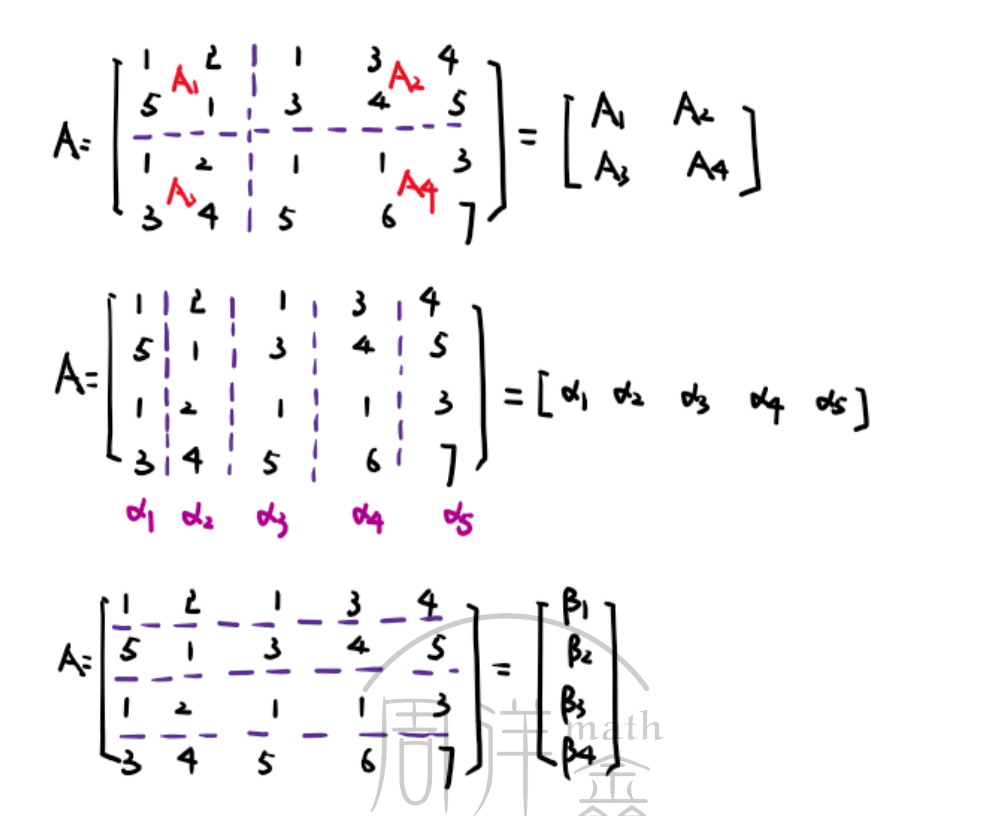 A= [ 1 2 1 3 4
5 1 3 4 5
1 2 1 1 3
3 4 5 6 7 ] = [ A₁ A₂
A₃ A₄ ]
A₁ A₂
A₃ A₄
A= [ 1 2 1 3 4
5 1 3 4 5
1 2 1 1 3
3 4 5 6 7 ] = [ α₁ α₂ α₃ α₄ α₅ ]
α₁ α₂ α₃ α₄ α₅
A= [ 1 2 1 3 4
5 1 3 4 5
1 2 1 1 3
3 4 5 6 7 ] = [ β₁
β₂
β₃
β₄ ]
周洋鑫
math